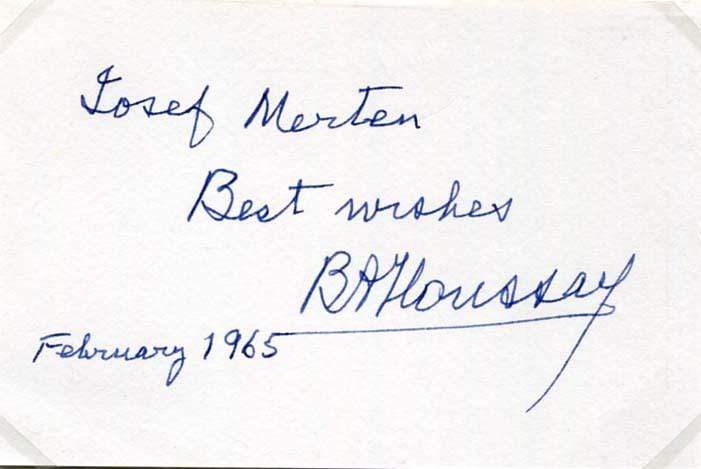 Josef Merten
Best wishes
BAHoussay
February 1965